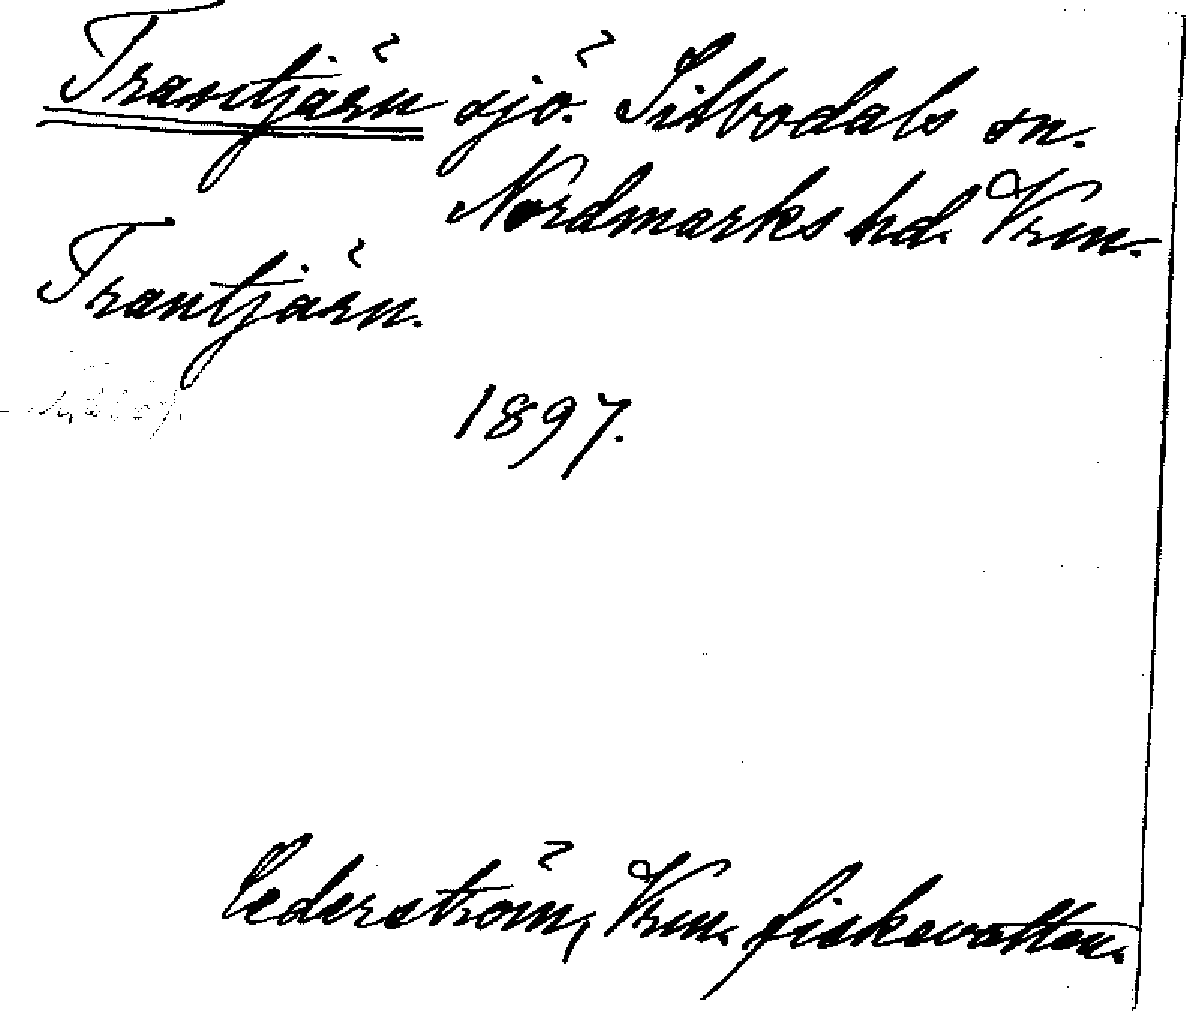 Trantjärn sjö. Silbodals sn.
Nordmarks hd. Vrm.
Trantjärn.
1897.
Cederström, Vrm. fiskevatten.